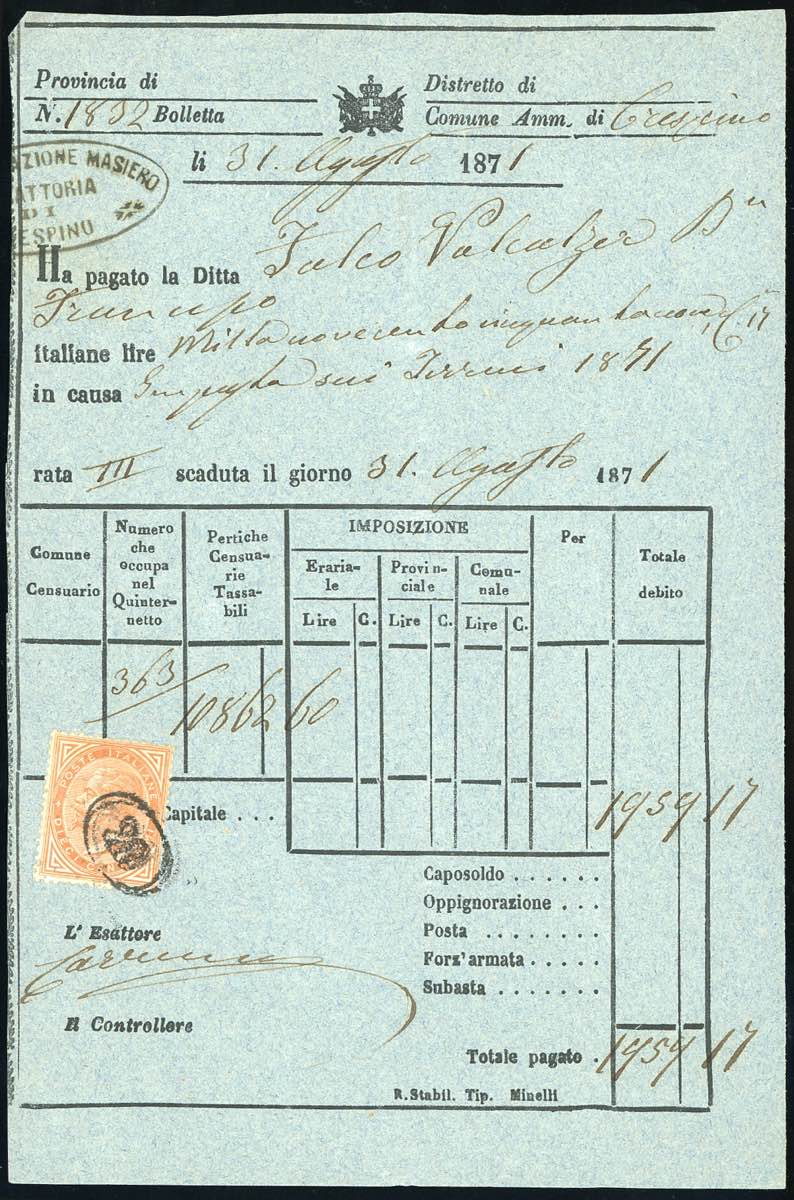 Provincia di
Distretto di
N. 1832 Bolletta
Comune Amm. di Crespino
li 31. Agosto 1871
AZIONE MASIERO
ATTORIA
DI
ESPINO
Ha pagato la Ditta Falco Valcalzer
italiane lire Millanovecentocinquantanove,
in causa Imposta sui Terreni 1871
rata III scaduta il giorno 31. Agosto 1871
Comune Censuario
Numero che occupa nel Quinternetto
Pertiche Censuarie Tassabili
IMPOSIZIONE
Erariale
Provinciale
Comunale
Lire C. Lire C. Lire C.
Per
Totale debito
363
10862 60
POSTE ITALIANE
Capitale . . . 1959 17
Caposoldo . . . . . .
Oppignorazione . . .
Posta . . . . . . .
Forz'armata . . . . .
Subasta . . . . . . .
L' Esattore
Il Controllore
Totale pagato . 1959 17
R. Stabil. Tip. Minelli